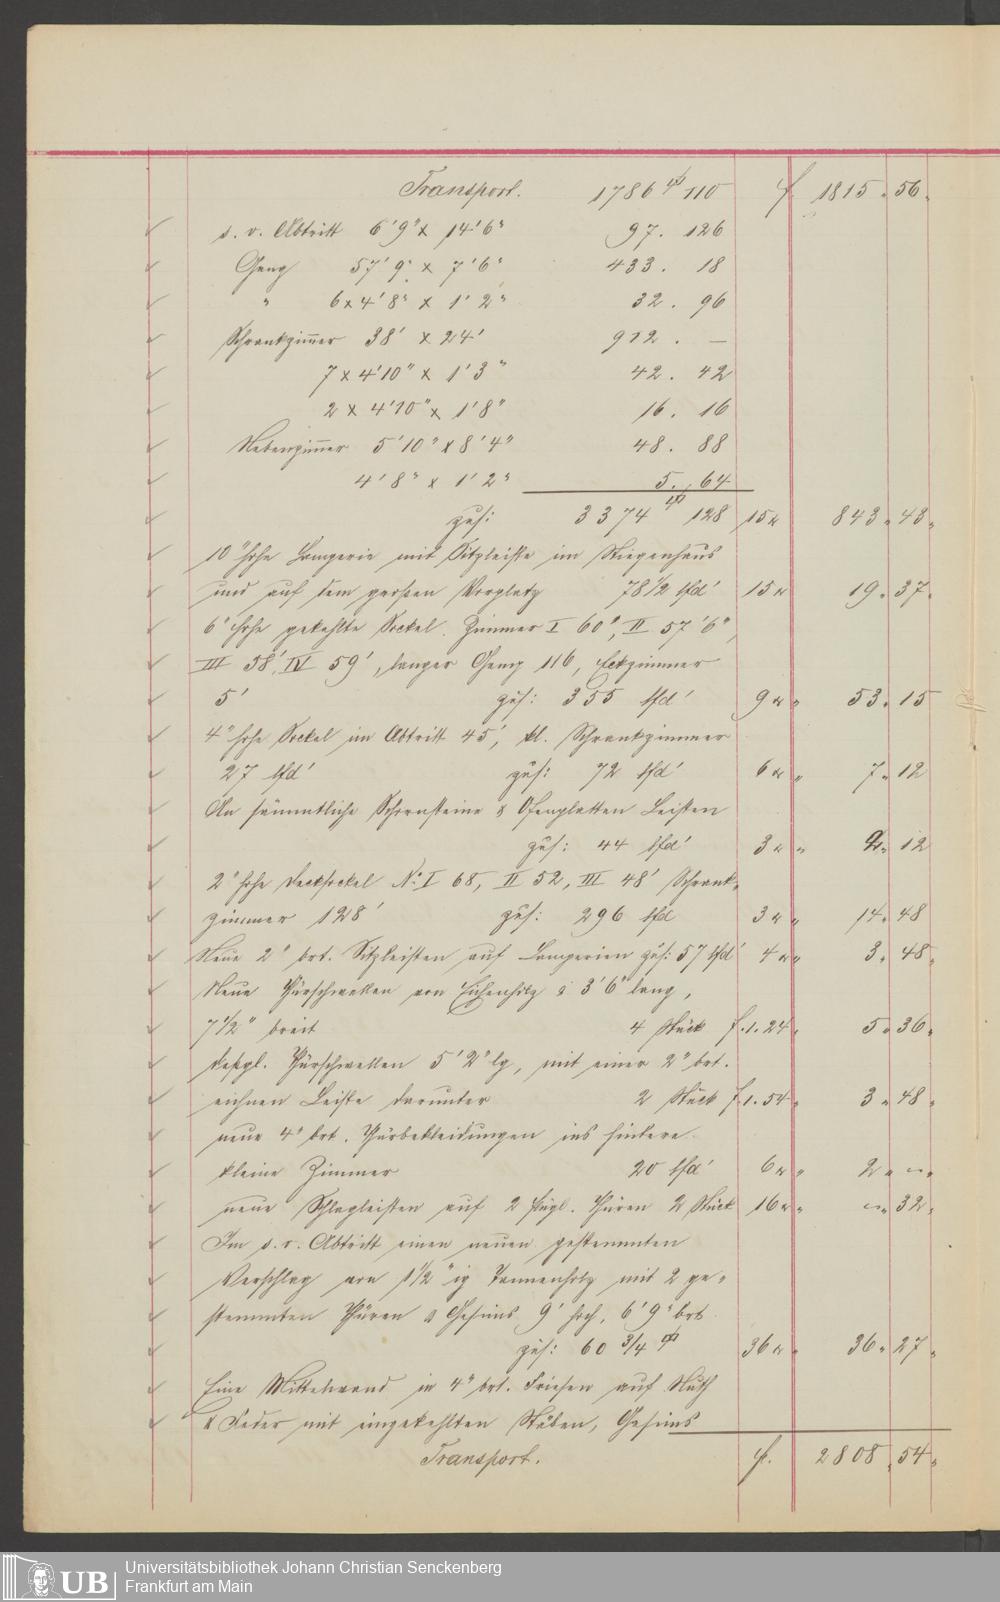 Transport. 1786 110 f 1815. 56.
s. v. Abtritt 6'9" x 14'6" 97. 126
Gang 57'9" x 7'6" 433. 18
" 6x4'8" x 1'2" 32. 96
Schrankzim̅er 38' x 24' 912. —
7 x 4'10" x 1'3" 42. 42
2 x 4'10" x 1'8" 16. 16
Nebenzim̅er 5'10" x 8'4" 48. 88
4'8" x 1'2" 5. 64
zus: 3374 128 15 x 843. 43.
10" hohe Lamperie mit Sitzleiste im Stiegenhaus
und auf dem großen Vorplatz 78 1/2 lfd' 15 x 19. 37.
6" hohe gekehlte Sockel. Zimmer I 60", II 57'6",
III 58', IV 59', langer Gang 116, Eckzimmer
5' zus: 355 lfd' 9 x " 53. 15
4" hohe Sockel im Abtritt 45', kl. Schrankzimmer
27 lfd' zus: 72 lfd' 6 x " 7. 12
An sämmtliche Schornsteine & Ofenplatten Leisten
zus: 44 lfd' 3 x " 2. 12
2" hohe Decksockel No. I 68, II 52, III 48' Schrank-
zimmer 128' zus: 296 lfd 3 x " 14. 48
Neue 2" brt. Sitzleisten auf Lamperien zus: 57 lfd' 4 x " 3. 48.
Neue Thürschwellen von Eichenholz à 3'6" lang,
7 1/2" breit 4 Stück f. 1. 24. 5. 36.
desgl. Thürschwellen 5'2" lg, mit einer 2" brt.
eichnen Leiste darunter 2 Stück f. 1. 54 " 3. 48.
neue 4" brt. Thürbekleidungen ins hintere
kleine Zimmer 20 lfd' 6 x " 2. —.
neue Schlagleisten auf 2 flügl. Thüren 2 Stück 16 x " —. 32.
Im s. v. Abtritt einen neuen gestemmten
Verschlag von 1 1/2"ig Tannenholz mit 2 ge-
stemmten Thüren & Gesims 9' hoch, 6'9" brt
zus: 60 3/4 36 x " 36. 27.
Eine Mittelwand in 4" brt. Friesen auf Nuth
& Feder mit eingekehlten Stäben, Gesims
Transport. f. 2808. 54.
Universitätsbibliothek Johann Christian Senckenberg
UB Frankfurt am Main